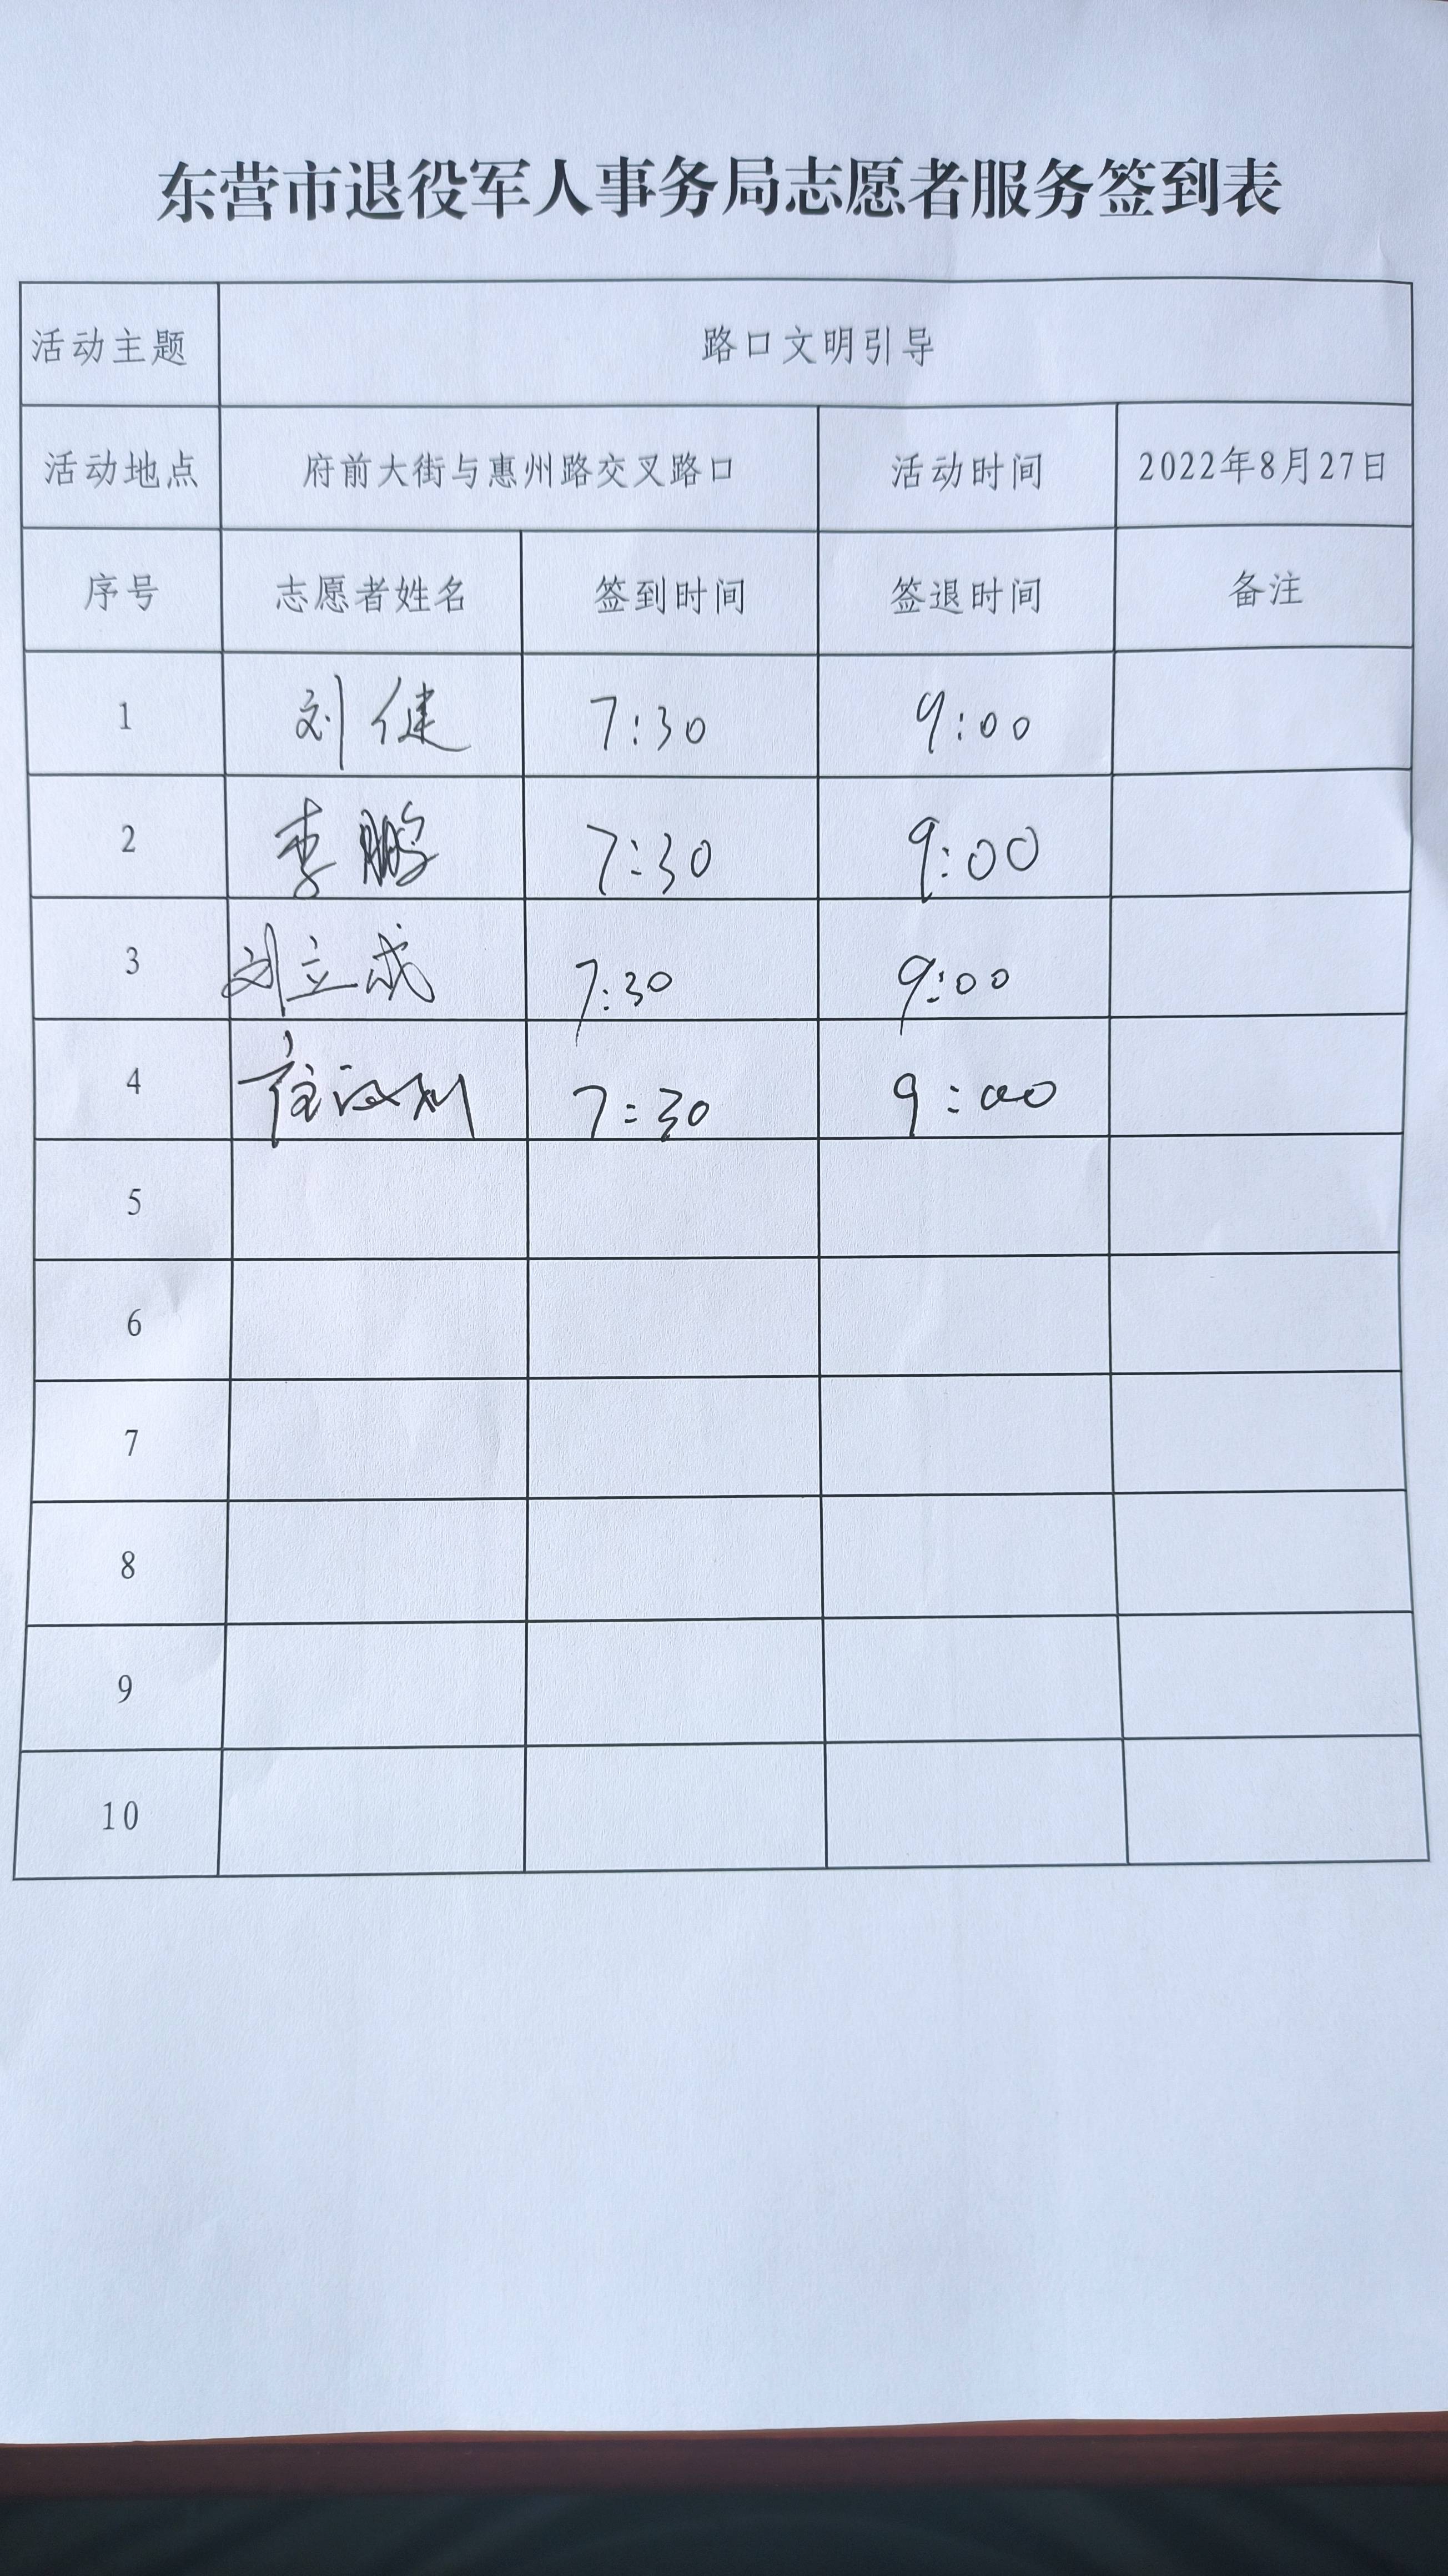 东营市退役军人事务局志愿者服务签到表
活动主题 路口文明引导
活动地点 府前大街与惠州路交叉路口 活动时间 2022年8月27日
序号 志愿者姓名 签到时间 签退时间 备注
1 刘健 7:30 9:00
2 李鹏 7:30 9:00
3 刘立成 7:30 9:00
4 7:30 9:00
5
6
7
8
9
10